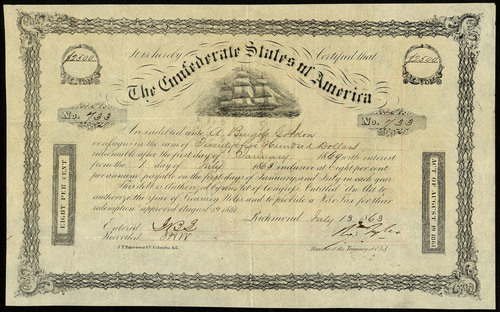 $2500
It is hereby Certified that
$2500
The Confederate States of America
No. 733
No. 733
are indebted unto
or assigns in the sum of Twenty five Hundred Dollars
redeemable after the first day of January 1864 with interest
from the day of July 1863 inclusive at Eight per cent
per annum payable on the first days of January and July in each year
This debt is authorized by an Act of Congress Entitled An Act to
authorize the issue of Treasury Notes and to provide a War Tax for their
redemption approved August 19 1861.
EIGHT PER CENT
ACT OF AUGUST 19 1861
Richmond July 13 1863
Entered
Recorded
Register of the Treasury C.S.